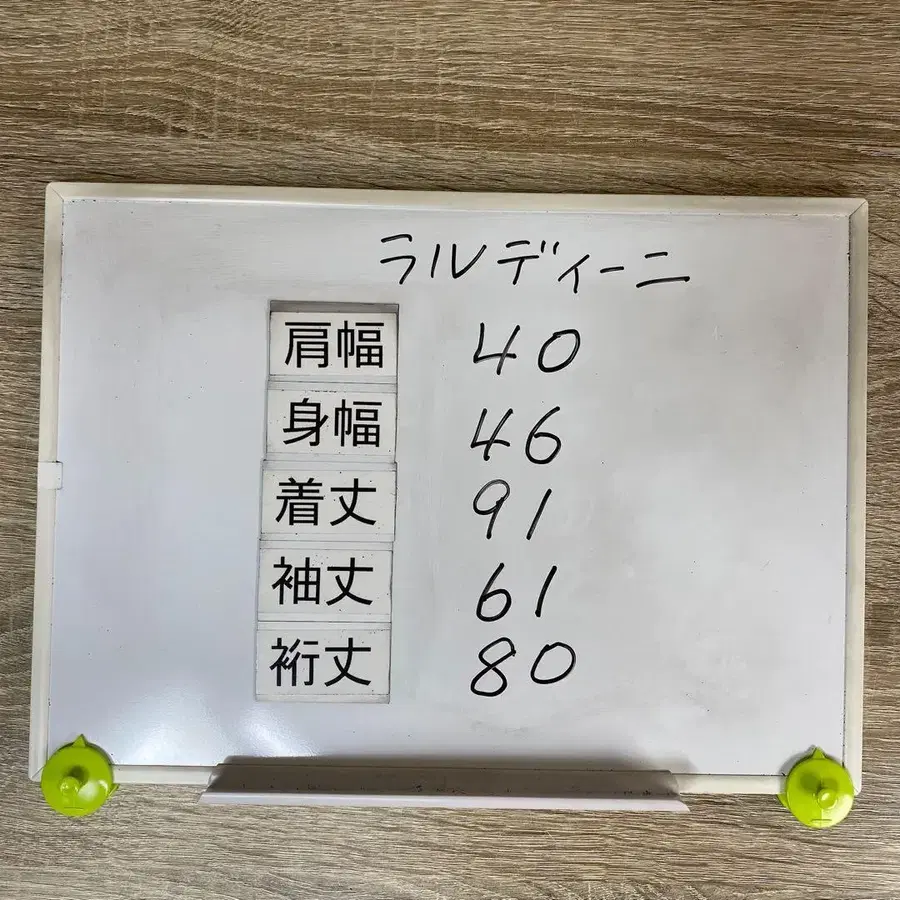 ラルディーニ
肩幅 40
身幅 46
着丈 91
袖丈 61
裄丈 80